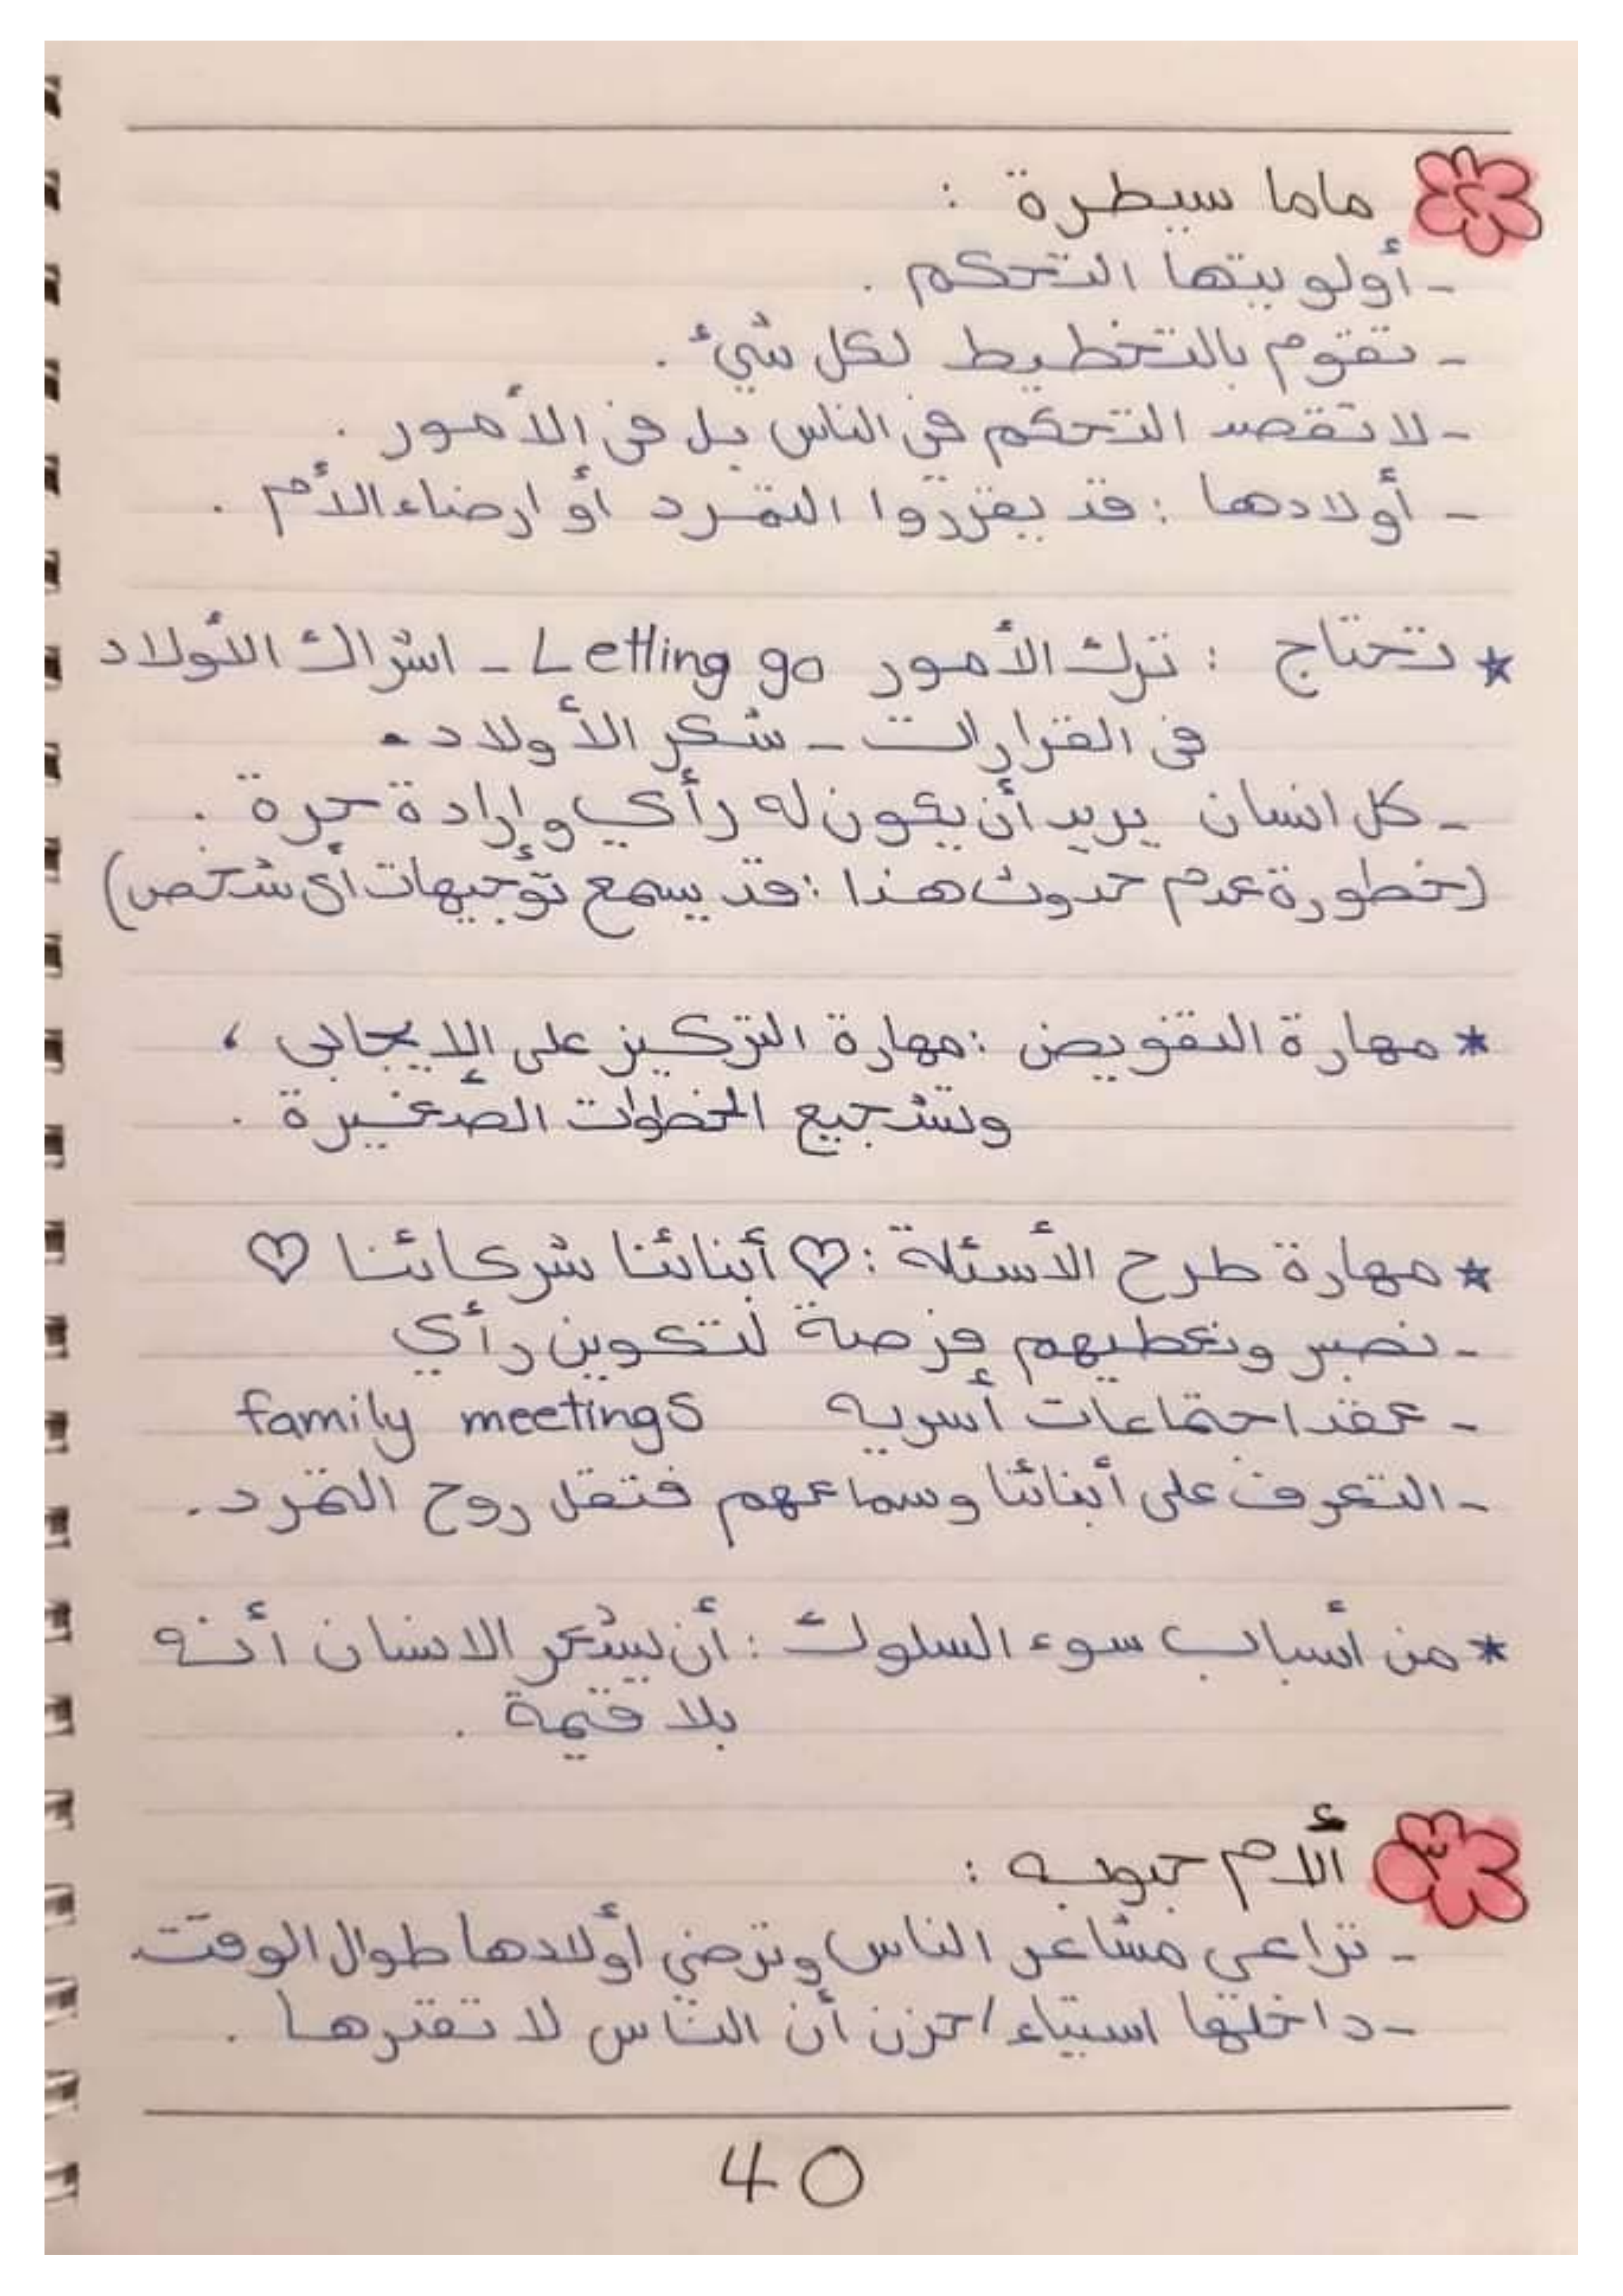 ٢ ماما سيطرة :
- أولويتها التحكم .
- تقوم بالتخطيط لكل شئ .
- لا تقصد التحكم فى الناس بل فى الأمور .
- أولادها : قد يقرروا التمرد أو ارضاء الأم .
* تحتاج : ترك الأمور Letting go - اشراك الأولاد
فى القرارات - شكر الأولاد .
- كل انسان يريد أن يكون له رأي وإرادة حرة .
(خطورة عدم حدوث هذا : قد يسمع توجيهات أى شخص)
* مهارة التفويض : مهارة التركيز على الإيجابى ،
وتشجيع الخطوات الصغيرة .
* مهارة طرح الأسئلة : ♡ أبنائنا شركائنا ♡
- نصبر ونعطيهم فرصة لتكوين رأي
- عقد اجتماعات أسريه family meetings
- التعرف على أبنائنا وسماعهم فتقل روح التمرد .
* من أسباب سوء السلوك : أن يشعر الانسان أنه
بلا قيمة .
٣ ألام حبوبه :
- تراعي مشاعر الناس وترضي أولادها طوال الوقت
- داخلها استياء / حزن أن الناس لا تقدرها .
40